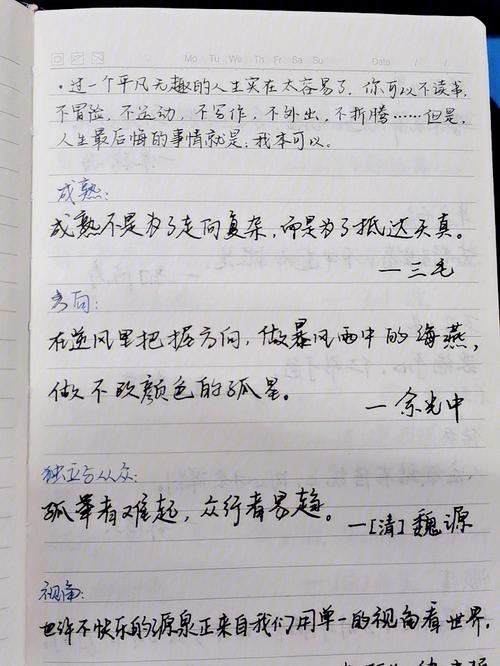 Mo Tu We Th Fr Sa Su Date / /
·过一个平凡无趣的人生实在太容易了,你可以不读书,
不冒险,不运动,不写作,不外出,不折腾……但是,
人生最后悔的事情就是:我本可以。
成熟:
成熟不是为了走向复杂,而是为了抵达天真。
—三毛
方向:
在逆风里把握方向,做暴风雨中的海燕,
做不改颜色的孤星。
—余光中
独立与从众:
孤举者难起,众行者易趋。
—[清]魏源
视角:
也许不快乐的源泉正来自我们用单一的视角看世界,